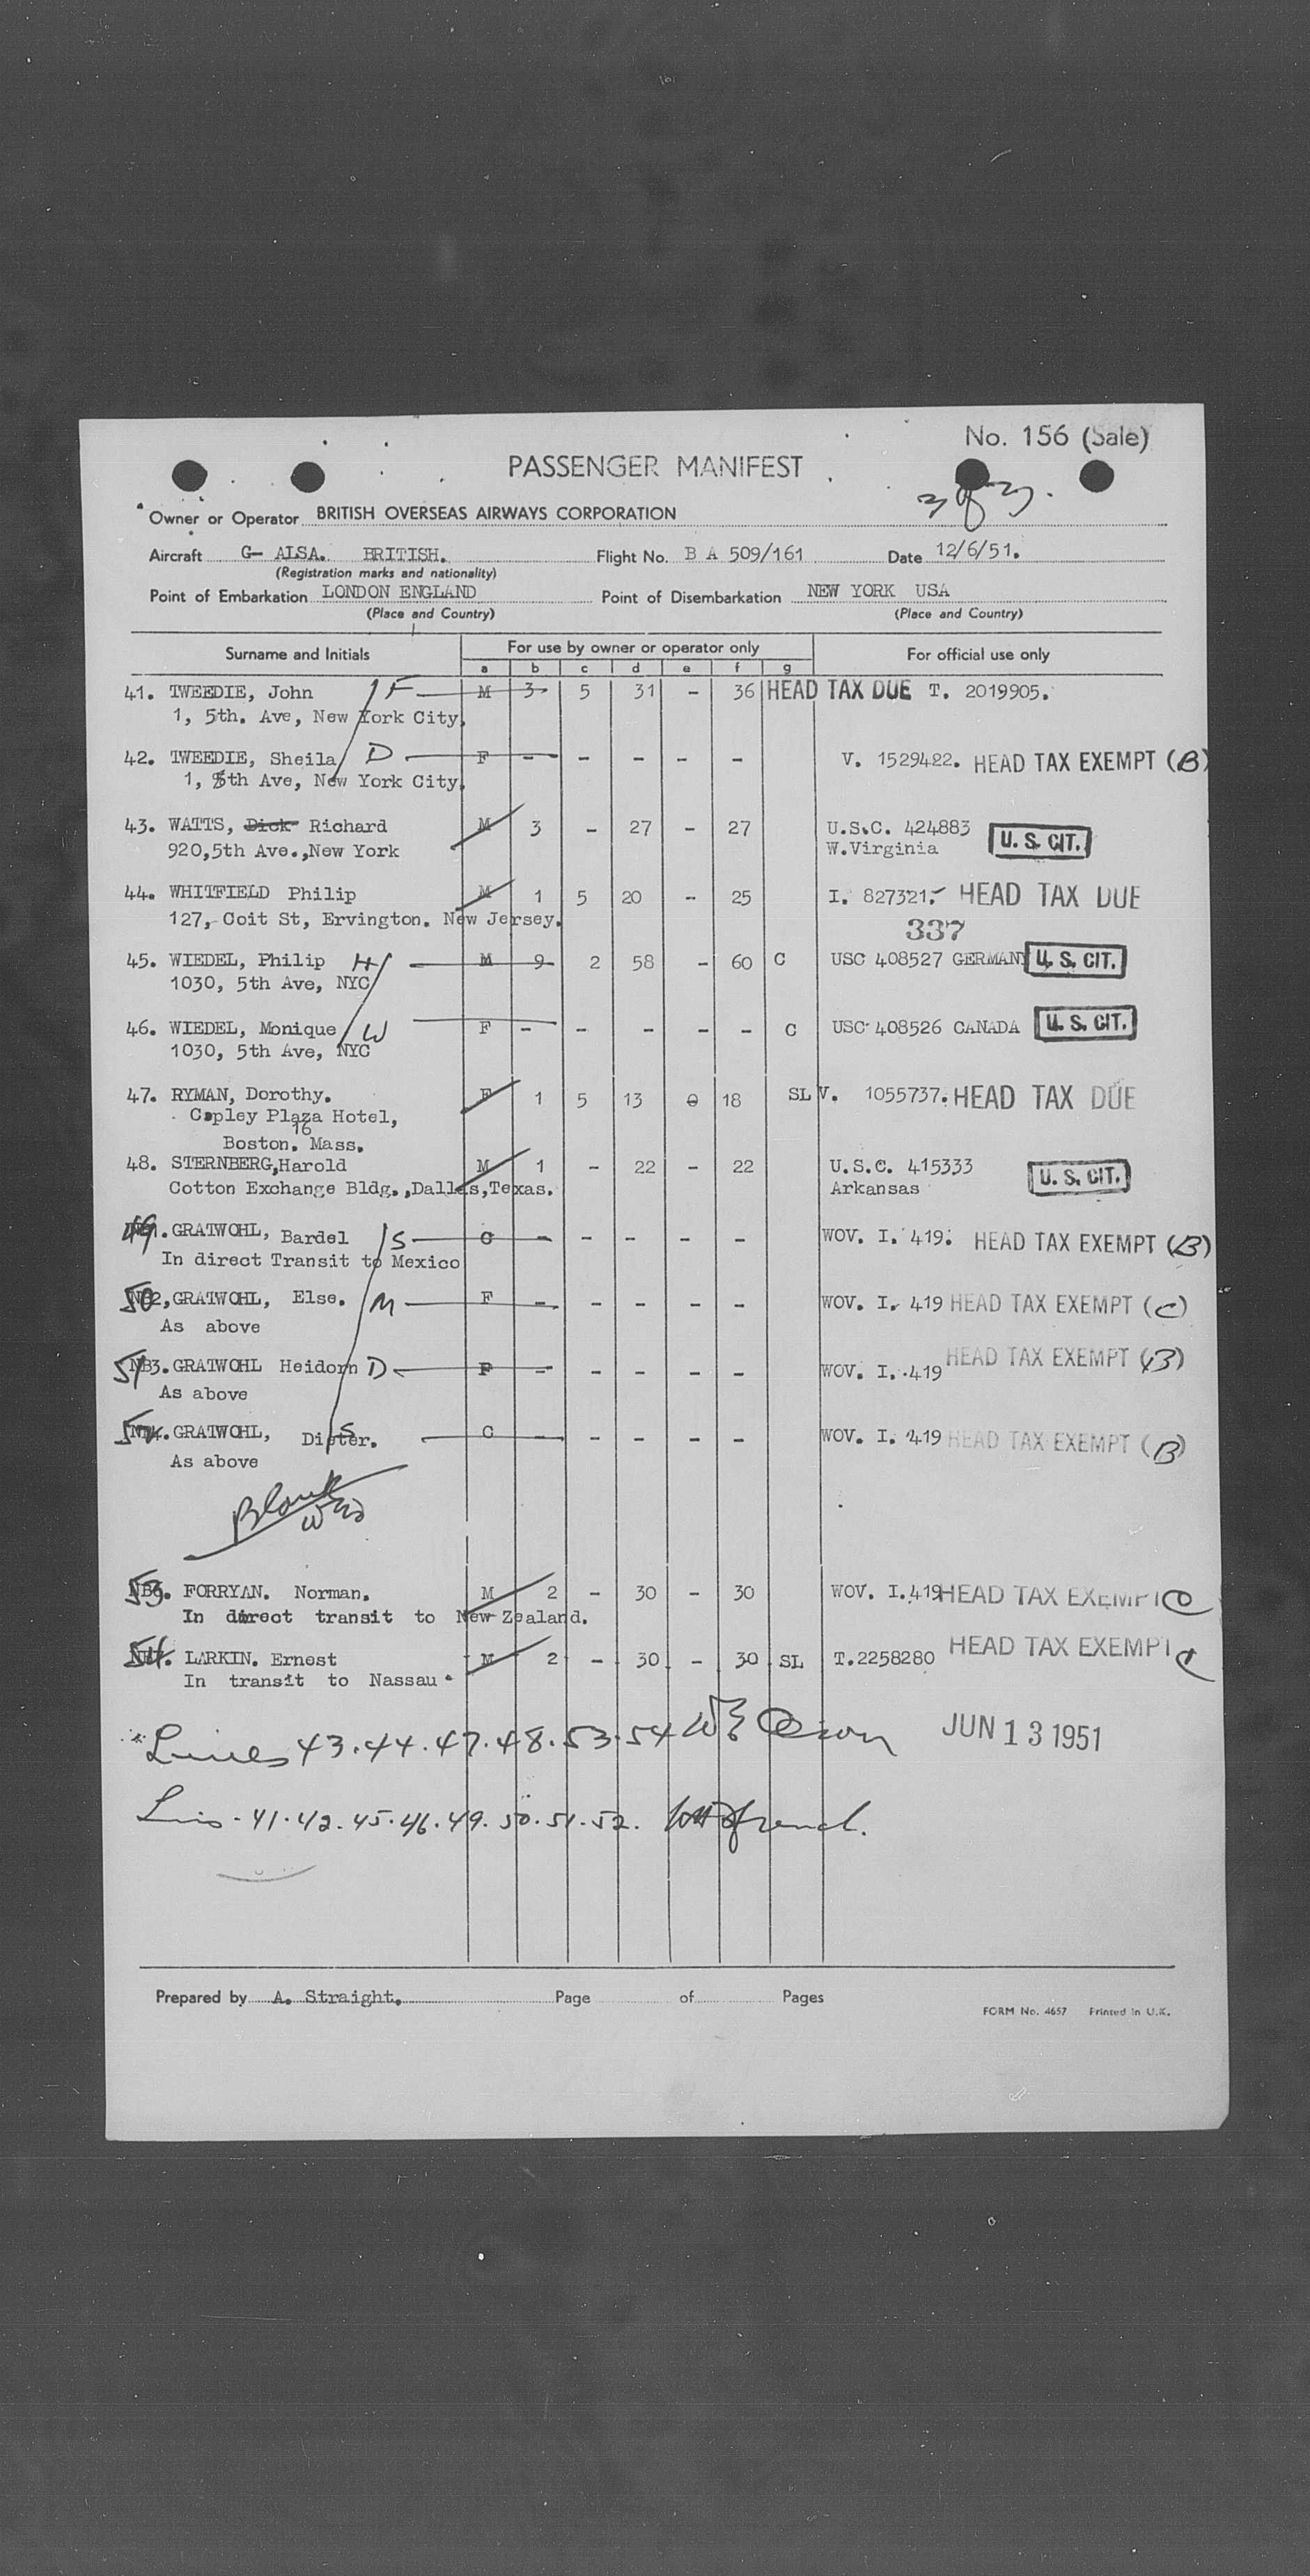 No. 156 (Sale)
PASSENGER MANIFEST
3 of 3.
Owner or Operator BRITISH OVERSEAS AIRWAYS CORPORATION
Aircraft G- ALSA. BRITISH. Flight No. B A 509/161 Date 12/6/51.
(Registration marks and nationality)
Point of Embarkation LONDON ENGLAND Point of Disembarkation NEW YORK USA
(Place and Country) (Place and Country)
Surname and Initials For use by owner or operator only For official use only
a b c d e f g
41. TWEEDIE, John F M 3 5 31 - 36 HEAD TAX DUE T. 2019905.
1, 5th. Ave, New York City.
42. TWEEDIE, Sheila D F - - - - - V. 1529422. HEAD TAX EXEMPT (B)
1, 5th Ave, New York City.
43. WATTS, Dick Richard M 3 - 27 - 27 U.S.C. 424883 U. S. CIT.
920,5th Ave.,New York W.Virginia
44. WHITFIELD Philip M 1 5 20 - 25 I. 827321. HEAD TAX DUE
127, Coit St, Ervington. New Jersey.
337
45. WIEDEL, Philip H M 9 2 58 - 60 C USC 408527 GERMANY U. S. CIT.
1030, 5th Ave, NYC
46. WIEDEL, Monique W F - - - - - C USC 408526 CANADA U. S. CIT.
1030, 5th Ave, NYC
47. RYMAN, Dorothy. F 1 5 13 0 18 SL V. 1055737. HEAD TAX DUE
Copley Plaza Hotel,
16
Boston. Mass.
48. STERNBERG,Harold M 1 - 22 - 22 U.S.C. 415333 U. S. CIT.
Cotton Exchange Bldg.,Dallas,Texas. Arkansas
49. GRATWOHL, Bardel S C - - - - - WOV. I. 419. HEAD TAX EXEMPT (B)
In direct Transit to Mexico
50 NB2, GRATWOHL, Else. M F - - - - - WOV. I. 419 HEAD TAX EXEMPT (C)
As above
51 NB3. GRATWOHL Heidorn D F - - - - - WOV. I. 419 HEAD TAX EXEMPT (B)
As above
52. GRATWOHL, Dieter. S C - - - - - WOV. I. 419 HEAD TAX EXEMPT (B)
As above
Blank
53. FORRYAN. Norman. M 2 - 30 - 30 WOV. I.419 HEAD TAX EXEMPT C
In direct transit to New Zealand.
54. LARKIN. Ernest M 2 - 30 - 30 SL T.2258280 HEAD TAX EXEMPT C
In transit to Nassau
Lines 43.44.47.48.53.54 JUN 13 1951
Lines-41.42.45.46.49.50.51.52.
Prepared by A. Straight. Page of Pages
FORM No. 4657 Printed in U.K.